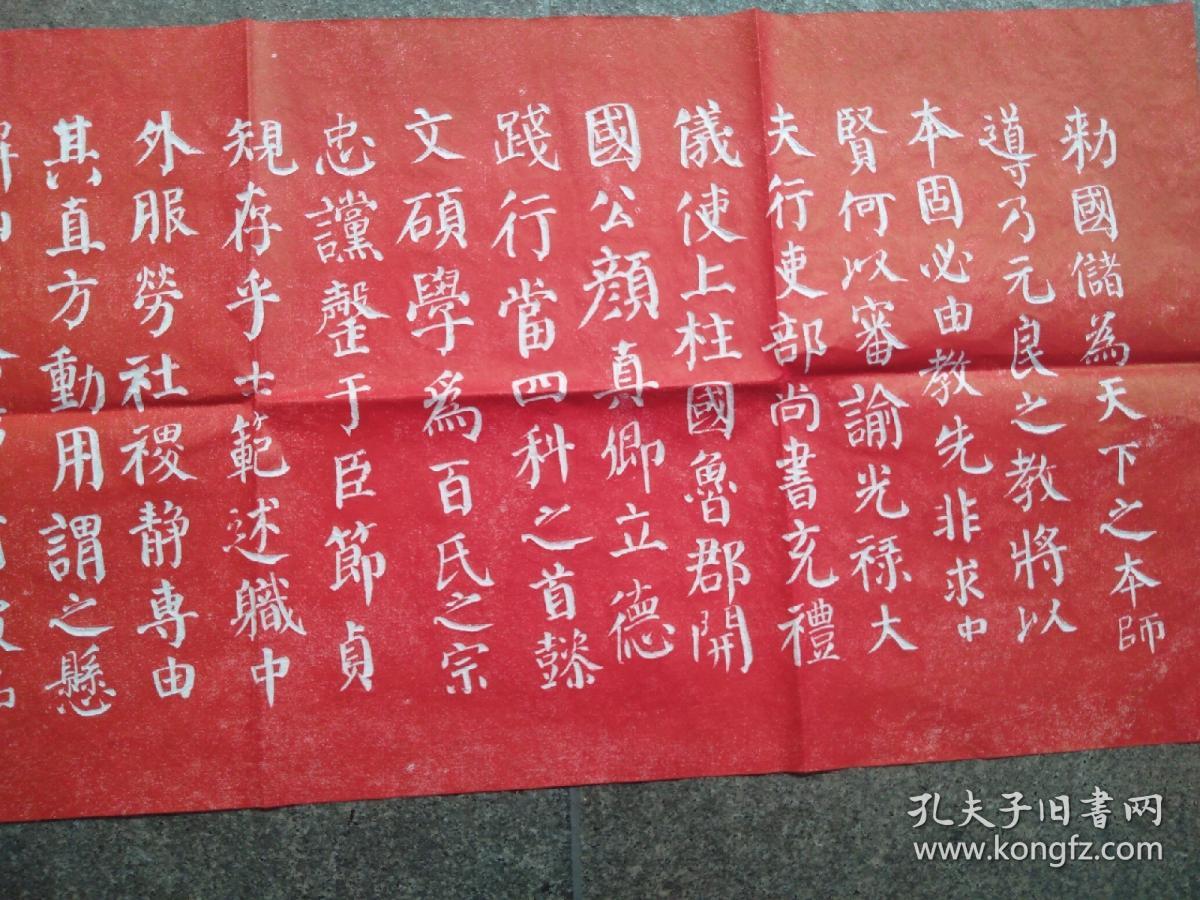 勑國儲為天下之本師
導乃元良之教將以
本固必由教先非求中
賢何以審諭光祿大
夫行吏部尚書充禮
儀使上柱國魯郡開
國公顏真卿立德
踐行當四科之首懿
文碩學為百氏之宗
忠讜罄于臣節貞
規存乎士範述職中
外服勞社稷靜專由
其直方動用謂之懸
孔夫子旧書网
www.kongfz.com